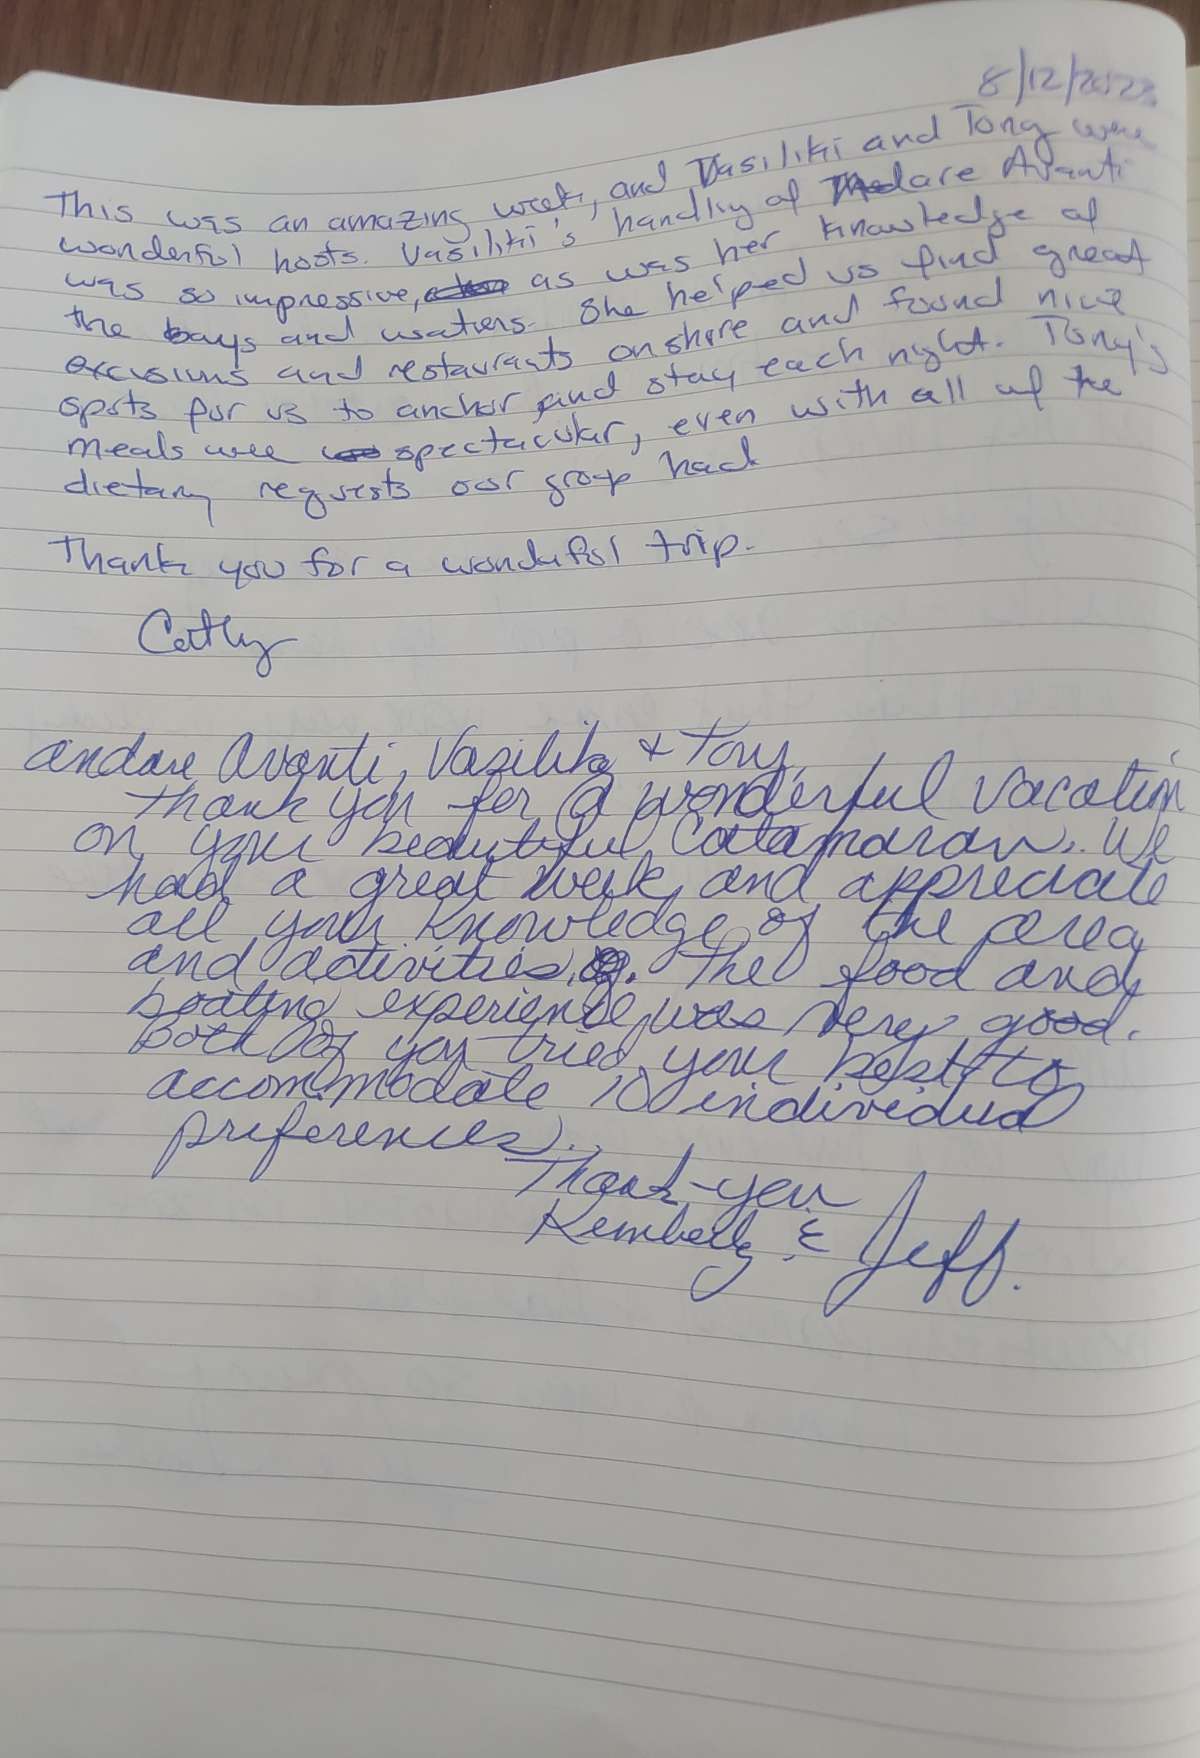 8/12/2023
This was an amazing week, and Vasiliki and Tony were
wonderful hosts. Vasiliki's handling of Andare Avanti
was so impressive, as was her knowledge of
the bays and waters. She helped us find great
excusions and restaurants onshore and found nice
spots for us to anchor and stay each night. Tony's
meals were spectacular, even with all of the
dietary requests our group had
Thank you for a wonderful trip.
Cathy
Andare Avanti, Vasiliky & Tony,
Thank you for a wonderful vacation
on your beautiful Catamaran. We
had a great week, and appreciate
all your knowledge of the area
and activities. The food and
boating experience was very good.
Both of you tried your best to
accommodate 10 individual
preferences.
Thank-you
Kimberly & Jeff.